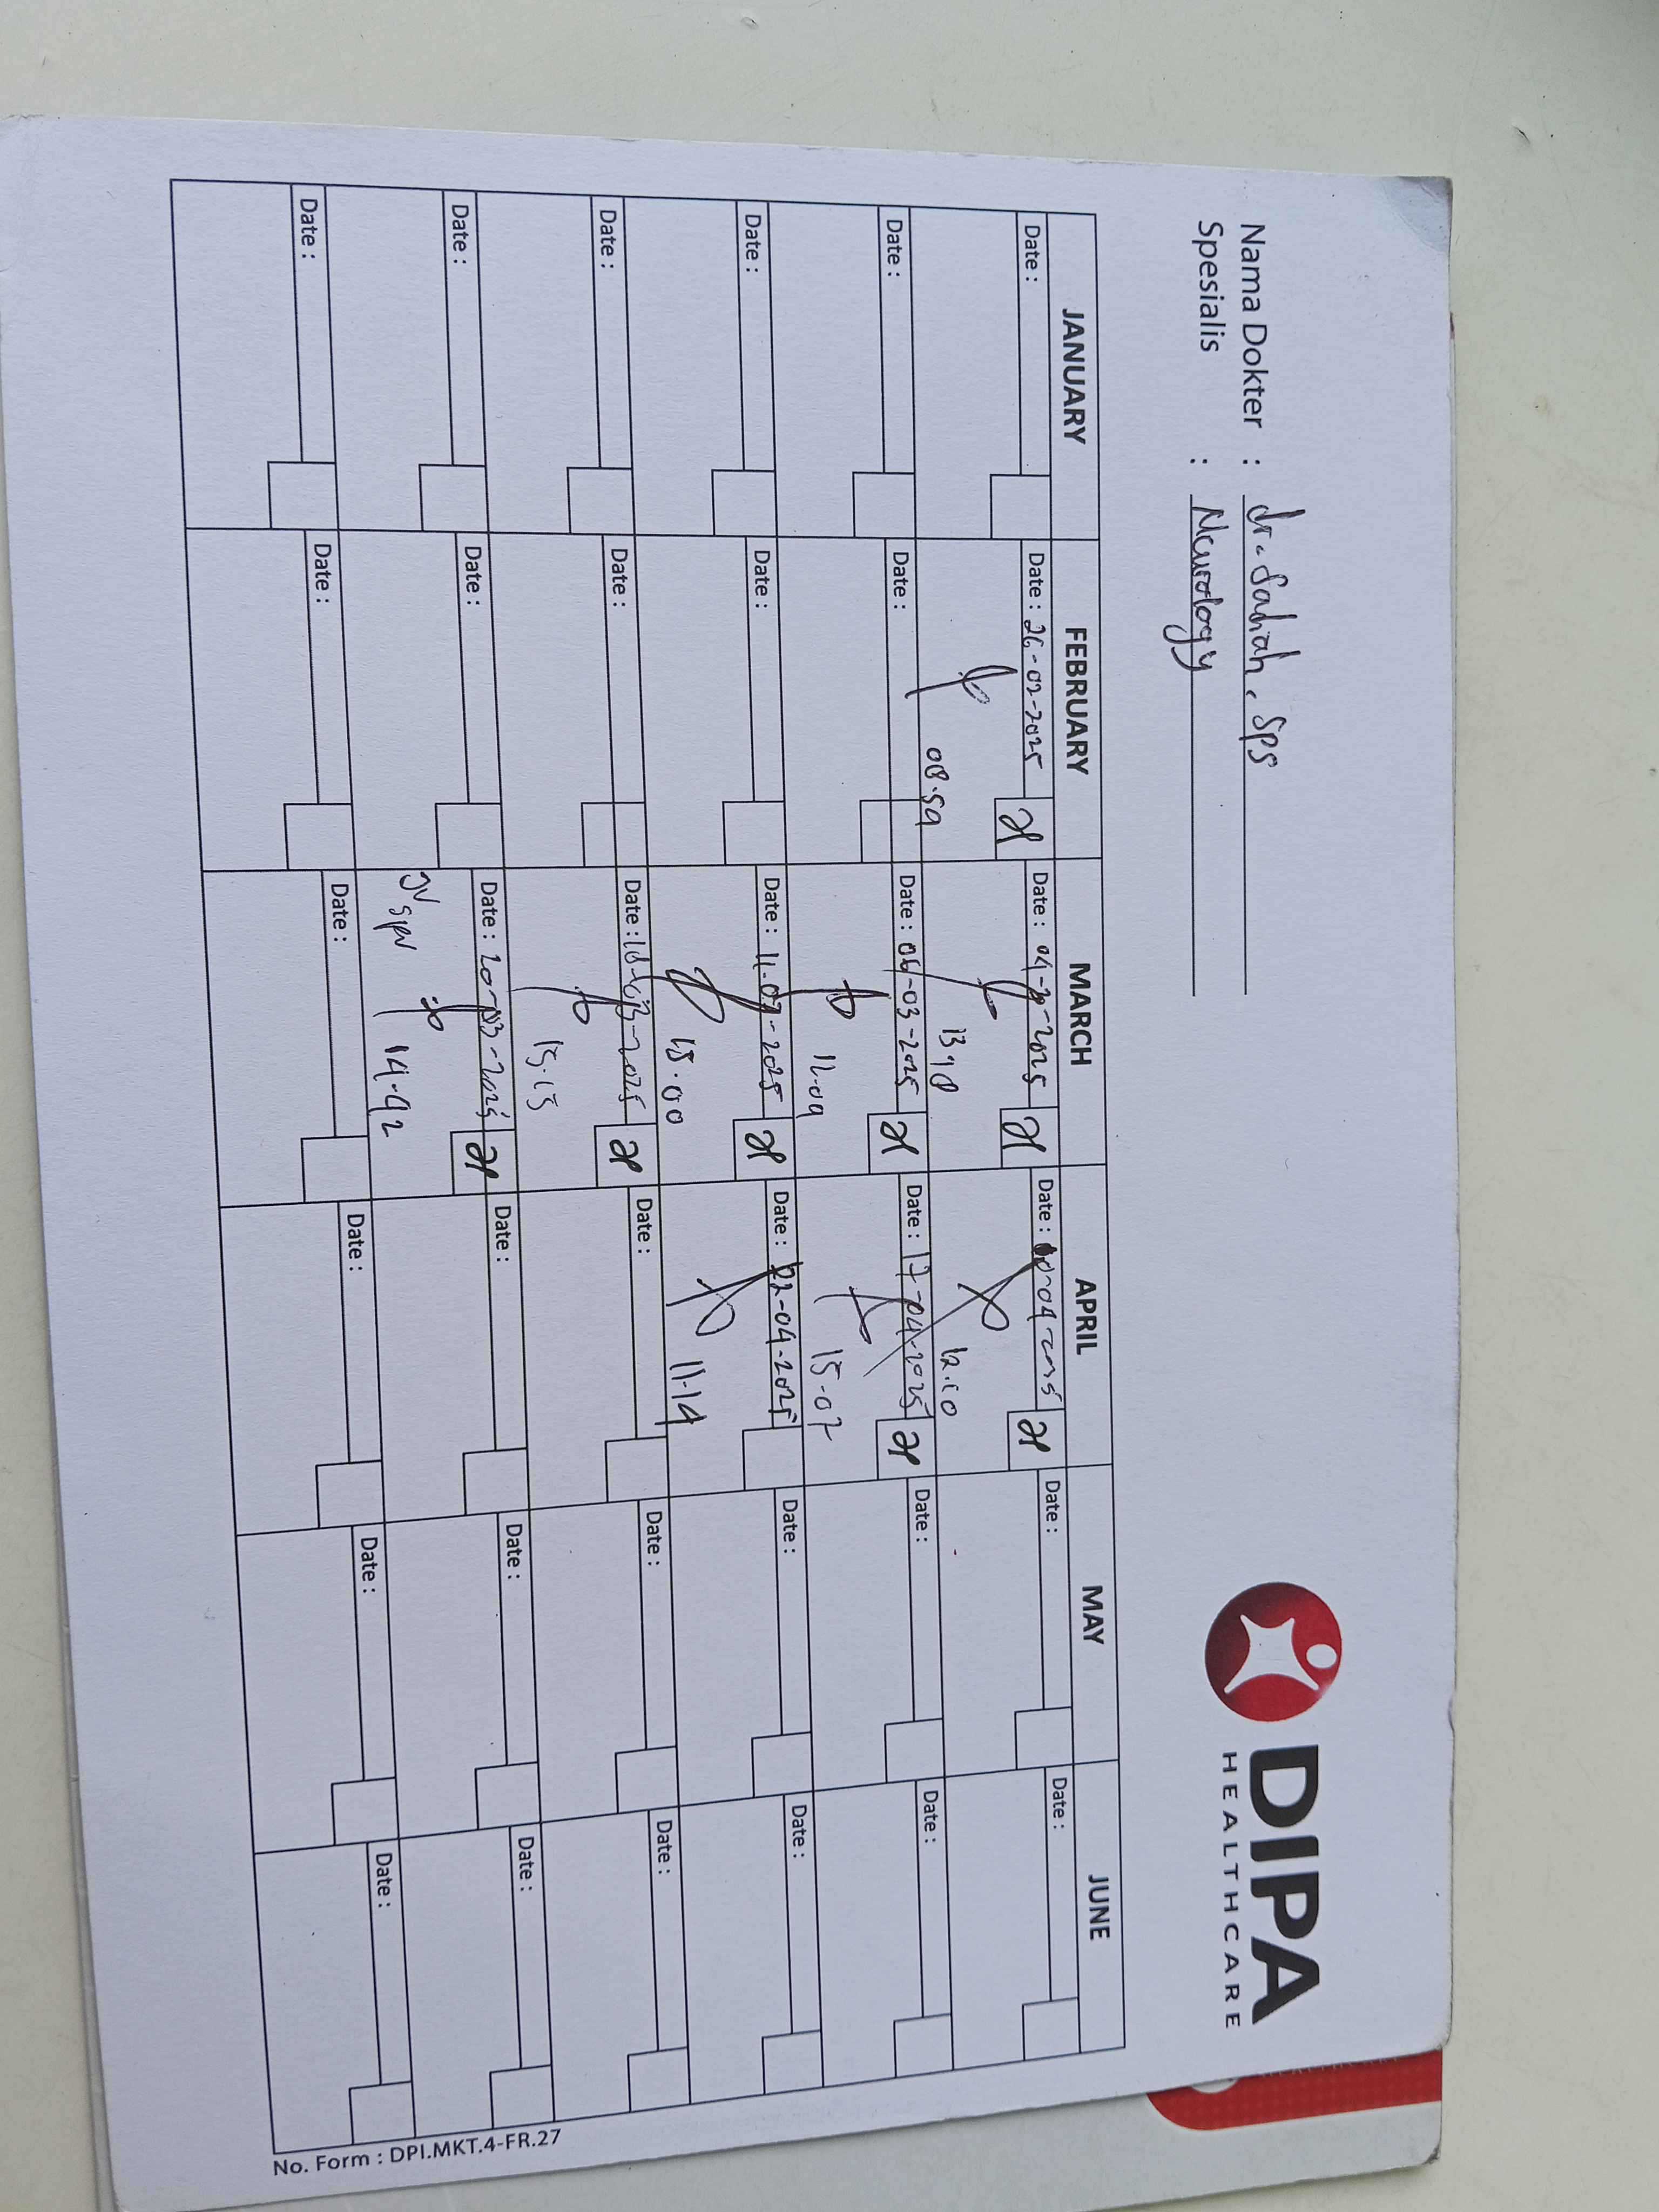 Nama Dokter : dr. Sahiah, SpS
Spesialis : Neurology
DIPA
HEALTHCARE
JANUARY FEBRUARY MARCH APRIL MAY JUNE
Date : Date : 26-02-2025 Date : 04-03-2025 Date : 10-04-2025 Date : Date :
08.59 13.18 12.10
Date : Date : Date : 06-03-2025 Date : 17-04-2025 Date : Date :
11.09 15-07
Date : Date : Date : 11-03-2025 Date : 22-04-2025 Date : Date :
15.00 11-14
Date : Date : Date : 18-03-2025 Date : Date : Date :
15.15
Date : Date : Date : 20-03-2025 Date : Date : Date :
JV spv 14-42
Date : Date : Date : Date : Date : Date :
No. Form : DPI.MKT.4-FR.27